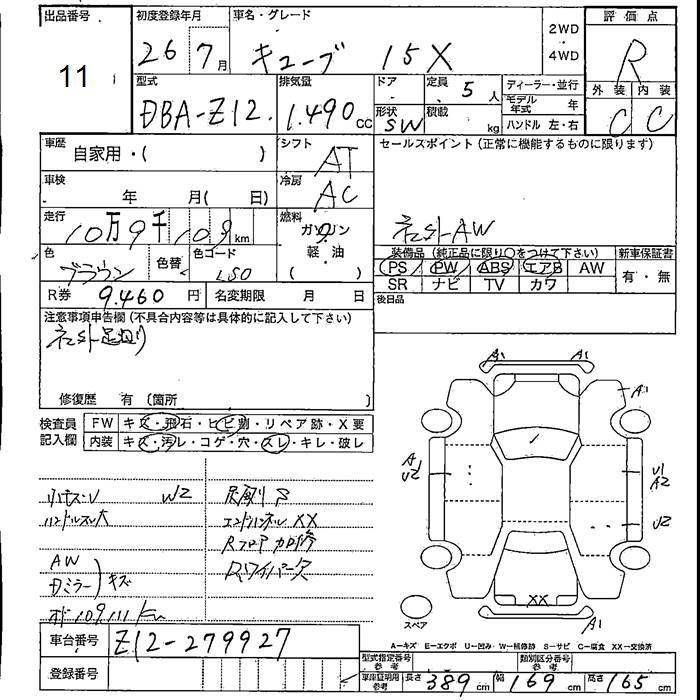 出品番号 初度登録年月 車名・グレード 2WD・4WD 評価点
11 26 7月 キューブ 15X R
型式 排気量 ドア 定員 5人 ディーラー・並行 外装 内装
DBA-Z12. 1.490cc 形状 SW 積載 kg モデル年式 年 C C
ハンドル 左・右
車歴 自家用・( ) シフト AT セールスポイント (正常に機能するものに限ります)
車検 年 月( 日) 冷房 AC
走行 10万9千109km 燃料 ガソリン 社外AW
軽・油
( )
色 ブラウン 色替 色コード 装備品 (純正品に限り○をつけて下さい) 新車保証書
PS PW ABS エアB AW 有・無
SR ナビ TV カワ
R券 9.460円 名変期限 月 日 後日品
注意事項申告欄 (不具合内容等は具体的に記入して下さい)
社外足廻り
修復歴 有 (箇所 )
検査員記入欄 FW キズ・飛石・ヒビ割・リペア跡・X要
内装 キズ・汚レ・コゲ・穴・スレ・キレ・破レ
A1 A1
A1
A U2 U1 A2
U2
W2
ハンドルスレ大 エンドパネル XX
Rフロア
AW Rワイパー欠
Dミラー キズ
XX
109,111 Km スペア A1
A-キズ E-エクボ U-凹み W-補修跡 S-サビ C-腐食 XX-交換済
車台番号 Z12-279927
登録番号 型式指定番号 参考 類別区分番号 参考
車庫証明用 参考 長さ 389cm 幅 169cm 高さ 165cm